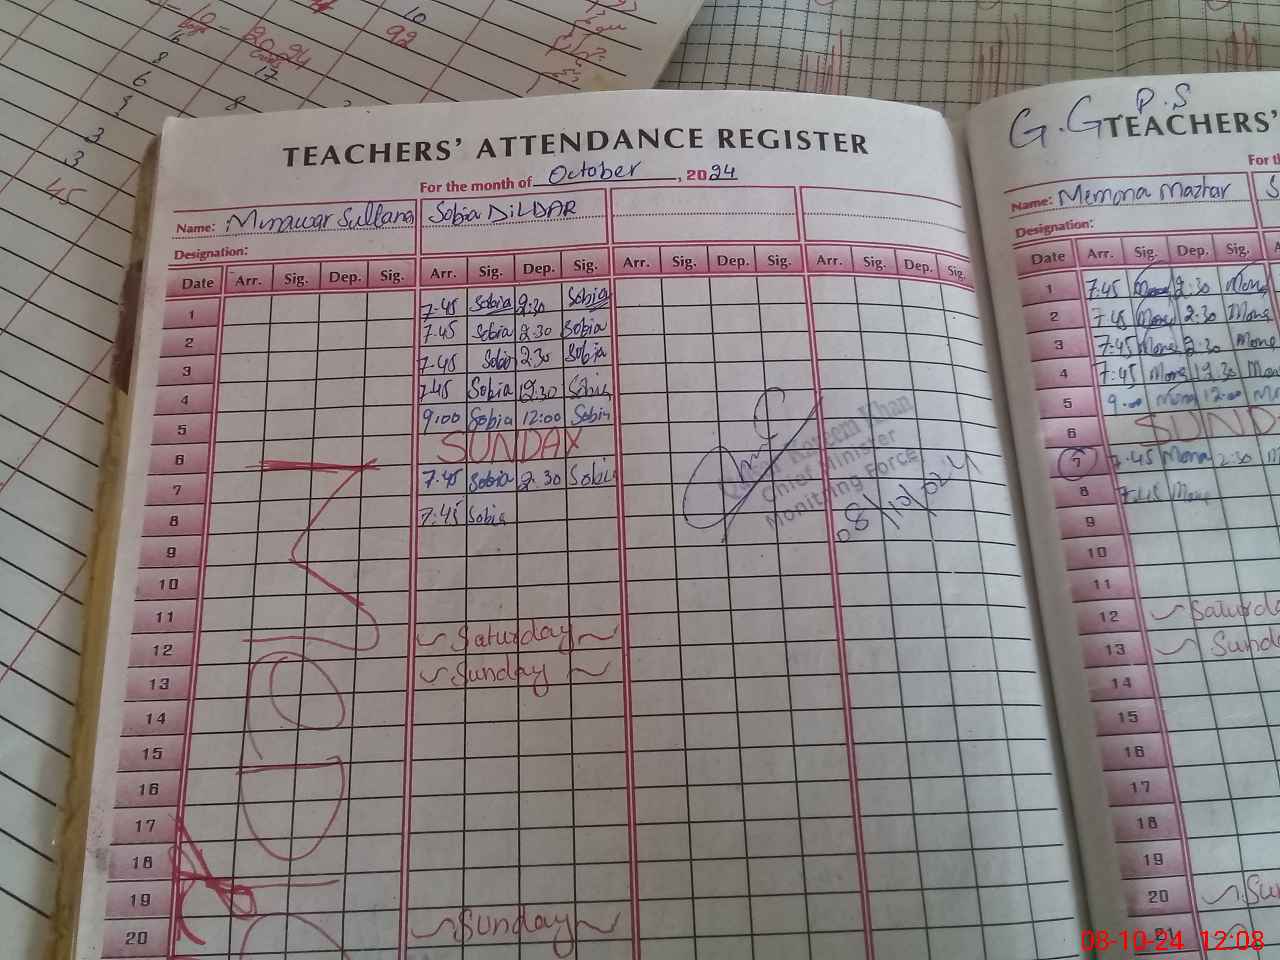 TEACHERS' ATTENDANCE REGISTER
For the month of October, 2024
Name: Minawar Sultana Sobia DILDAR
Designation:
Date Arr. Sig. Dep. Sig. Arr. Sig. Dep. Sig. Arr. Sig. Dep. Sig. Arr. Sig. Dep. Sig.
1 7.45 Sobia 2:30 Sobia
2 7.45 Sobia 2:30 Sobia
3 7.45 Sobia 2:30 Sobia
4 7.45 Sobia 12:30 Sobia
5 9:00 Sobia 12:00 Sobia
6 SUNDAY
7 7.45 Sobia 2:30 Sobia
8 7:45 Sobia
9
10
11
12 ~ Saturday ~
13 ~ Sunday ~
14
15
16
17
18
19
20 ~ Sunday ~
Chief Minister
Monitoring Force
08/10/024
G.G P.S
TEACHERS'
For th
Name: Memona Mazhar S
Designation:
Date Arr. Sig. Dep. Sig. A
1 7.45 2:30 Mona
2 7.45 Mona 2:30 Mona
3 7:45 Mona 2:30 Mona
4 7:45 Mona 12:30 Mona
5 9:00 Mona 12:00
6 SUND
7 7.45 Mona 2:30
8 7:45 Mona
9
10
11
12 ~ Saturda
13 ~ Sund
14
15
16
17
18
19
20 ~ Su
21
10
92
17
8
8
6
3
3
45
08-10-24 12:08